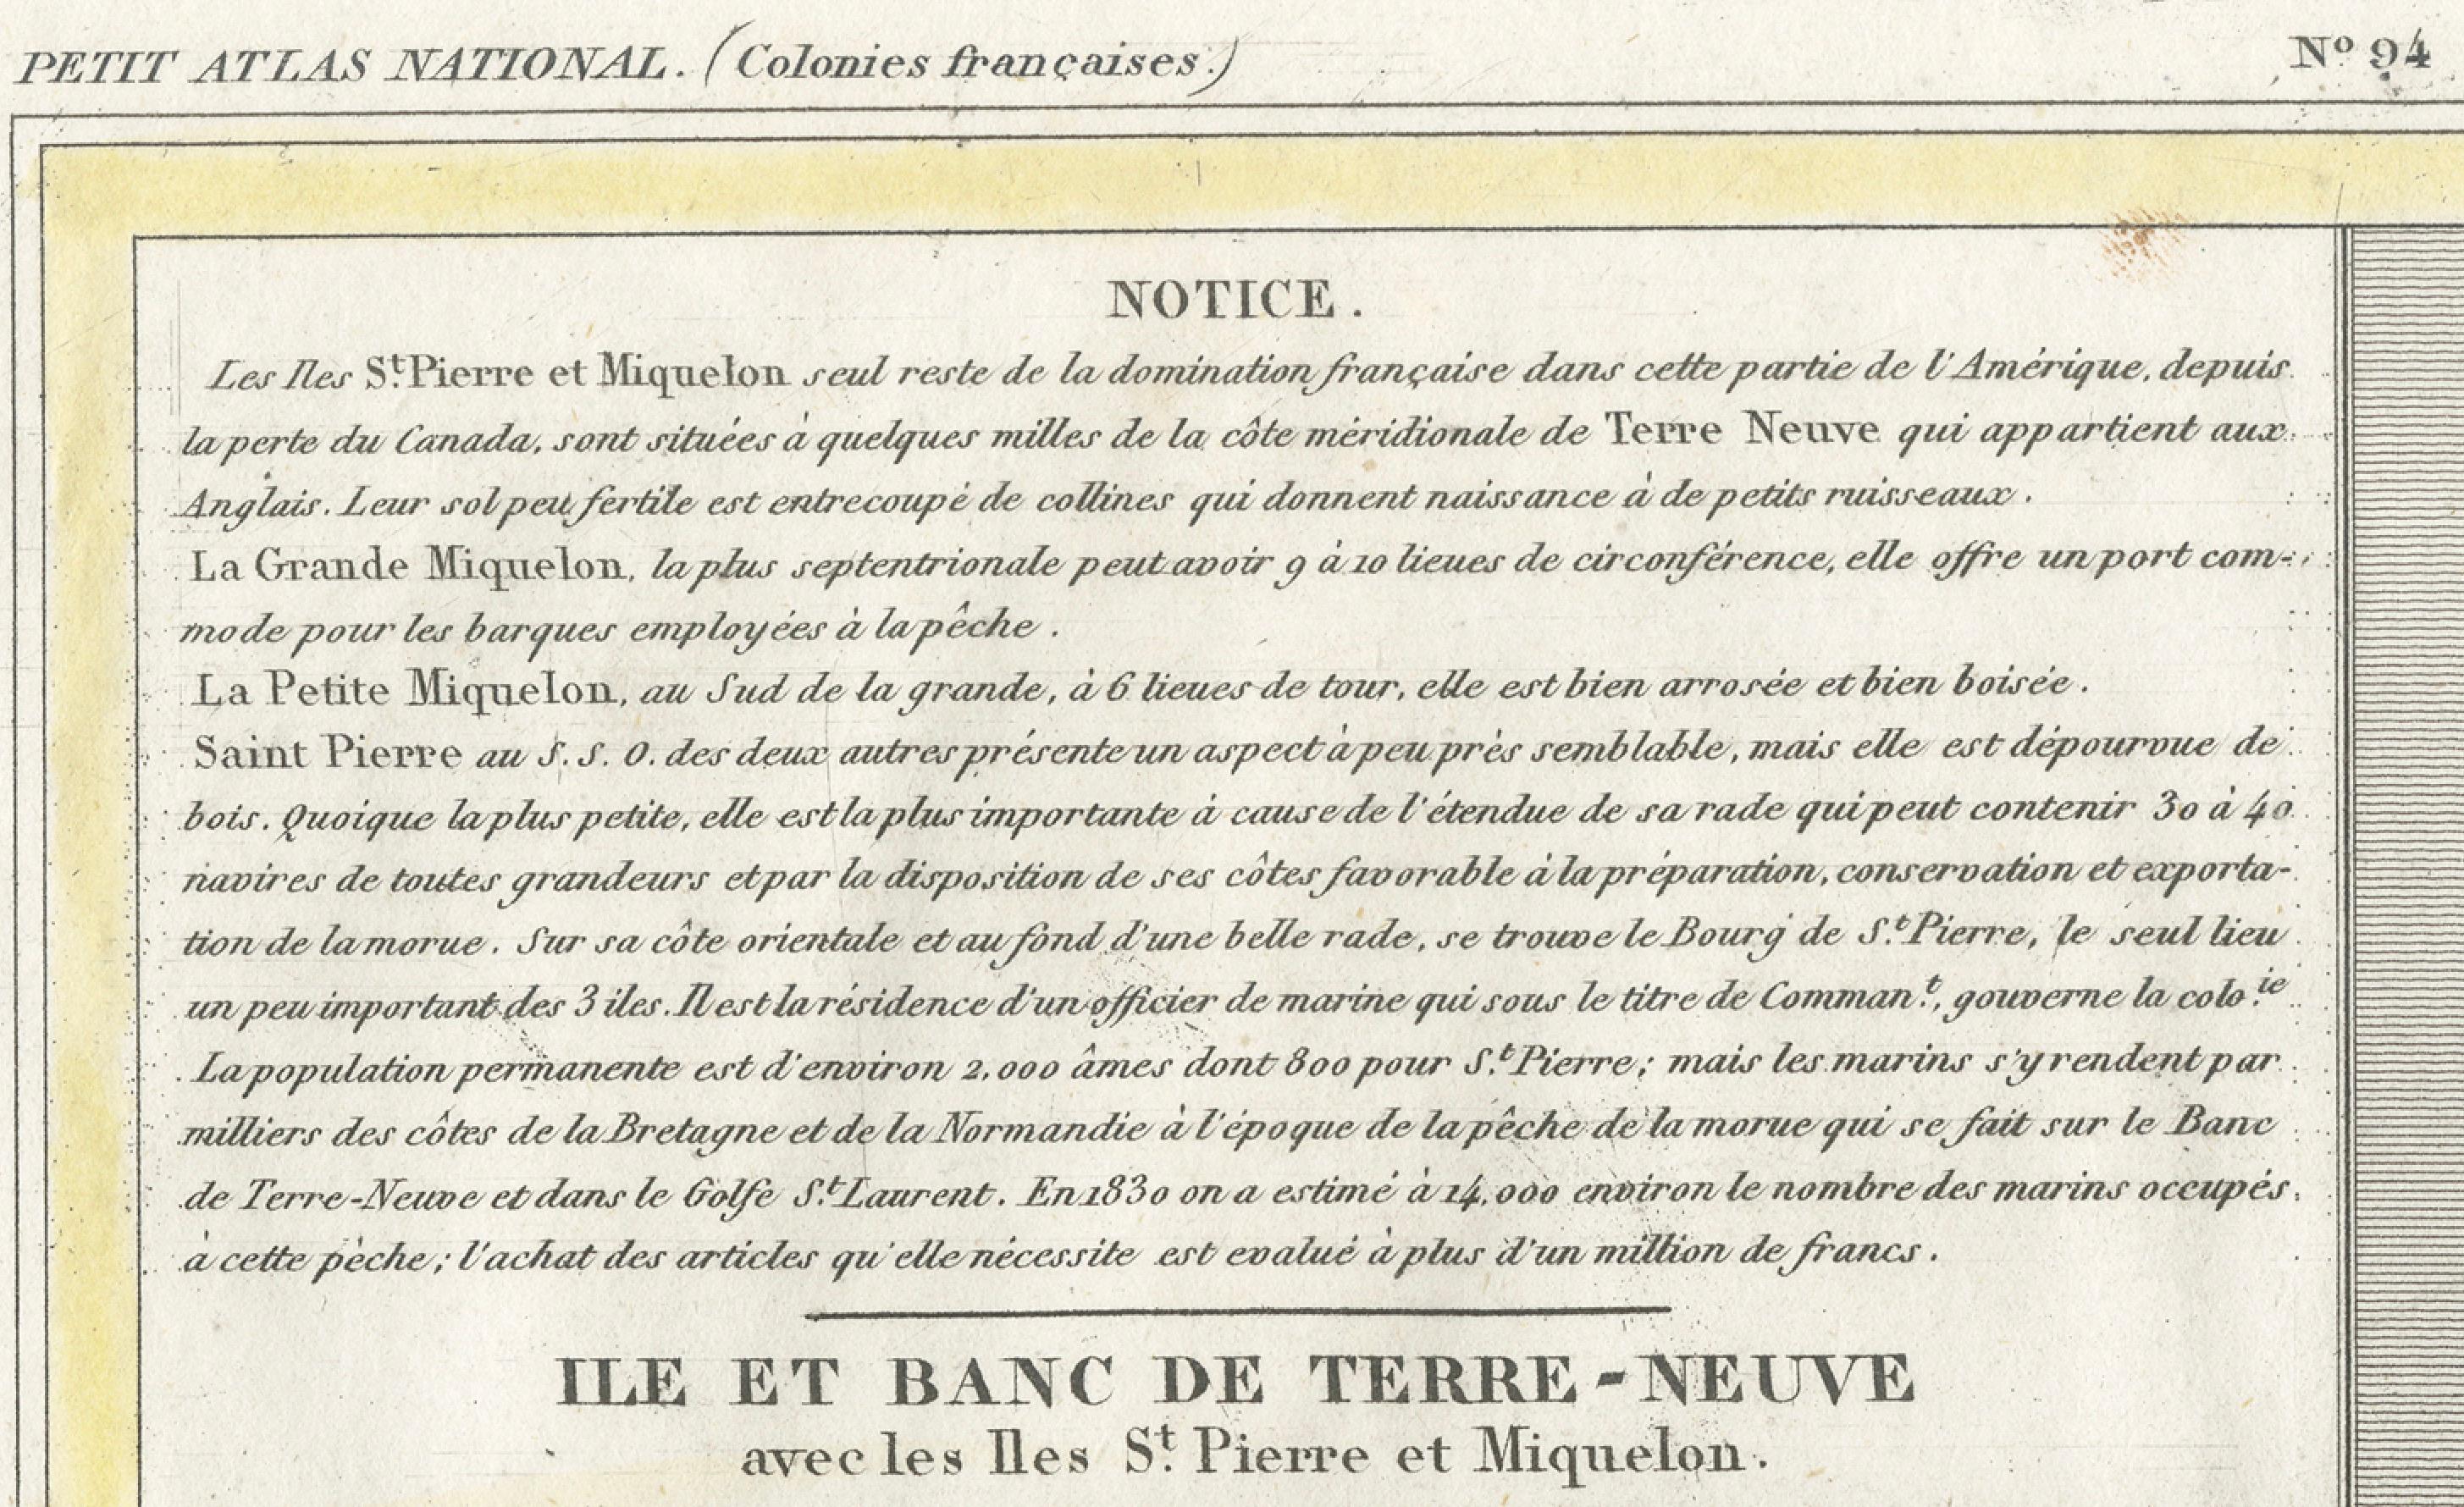 PETIT ATLAS NATIONAL. (Colonies françaises.)
Nº 94
NOTICE.
Les Iles St. Pierre et Miquelon seul reste de la domination française dans cette partie de l'Amérique, depuis
la perte du Canada, sont situées à quelques milles de la côte méridionale de Terre Neuve qui appartient aux
Anglais. Leur sol peu fertile est entrecoupé de collines qui donnent naissance à de petits ruisseaux.
La Grande Miquelon, la plus septentrionale peut avoir 9 à 10 lieues de circonférence, elle offre un port com-
mode pour les barques employées à la pêche.
La Petite Miquelon, au Sud de la grande, à 6 lieues de tour, elle est bien arrosée et bien boisée.
Saint Pierre au S. S. O. des deux autres présente un aspect à peu près semblable, mais elle est dépourvue de
bois. Quoique la plus petite, elle est la plus importante à cause de l'étendue de sa rade qui peut contenir 30 à 40
navires de toutes grandeurs et par la disposition de ses côtes favorable à la préparation, conservation et exporta-
tion de la morue. Sur sa côte orientale et au fond d'une belle rade, se trouve le Bourg de St. Pierre, le seul lieu
un peu important des 3 iles. Il est la résidence d'un officier de marine qui sous le titre de Comman.t, gouverne la colo.ie
La population permanente est d'environ 2,000 âmes dont 800 pour St. Pierre; mais les marins s'y rendent par
milliers des côtes de la Bretagne et de la Normandie à l'époque de la pêche de la morue qui se fait sur le Banc
de Terre-Neuve et dans le Golfe St. Laurent. En 1830 on a estimé à 14,000 environ le nombre des marins occupés
à cette pèche; l'achat des articles qu'elle nécessite est evalué à plus d'un million de francs.
ILE ET BANC DE TERRE-NEUVE
avec les Iles St. Pierre et Miquelon.